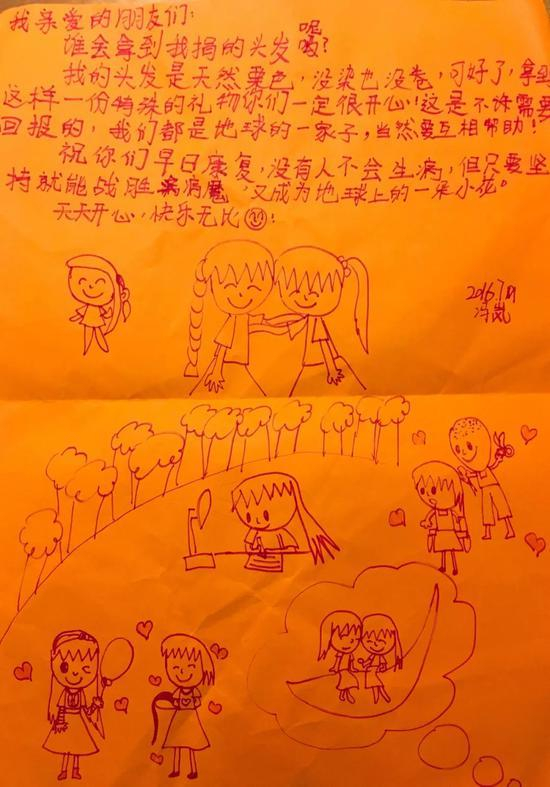 我亲爱的朋友们:
谁会拿到我捐的头发呢?
我的头发是天然栗色,没染也没卷,可好了,拿到
这样一份特殊的礼物你们一定很开心!这是不需要
回报的,我们都是地球的一家子,当然要互相帮助!
祝你们早日康复,没有人不会生病,但只要坚
持就能战胜病魔,又成为地球上的一朵小花。
天天开心,快乐无比!
冯岚